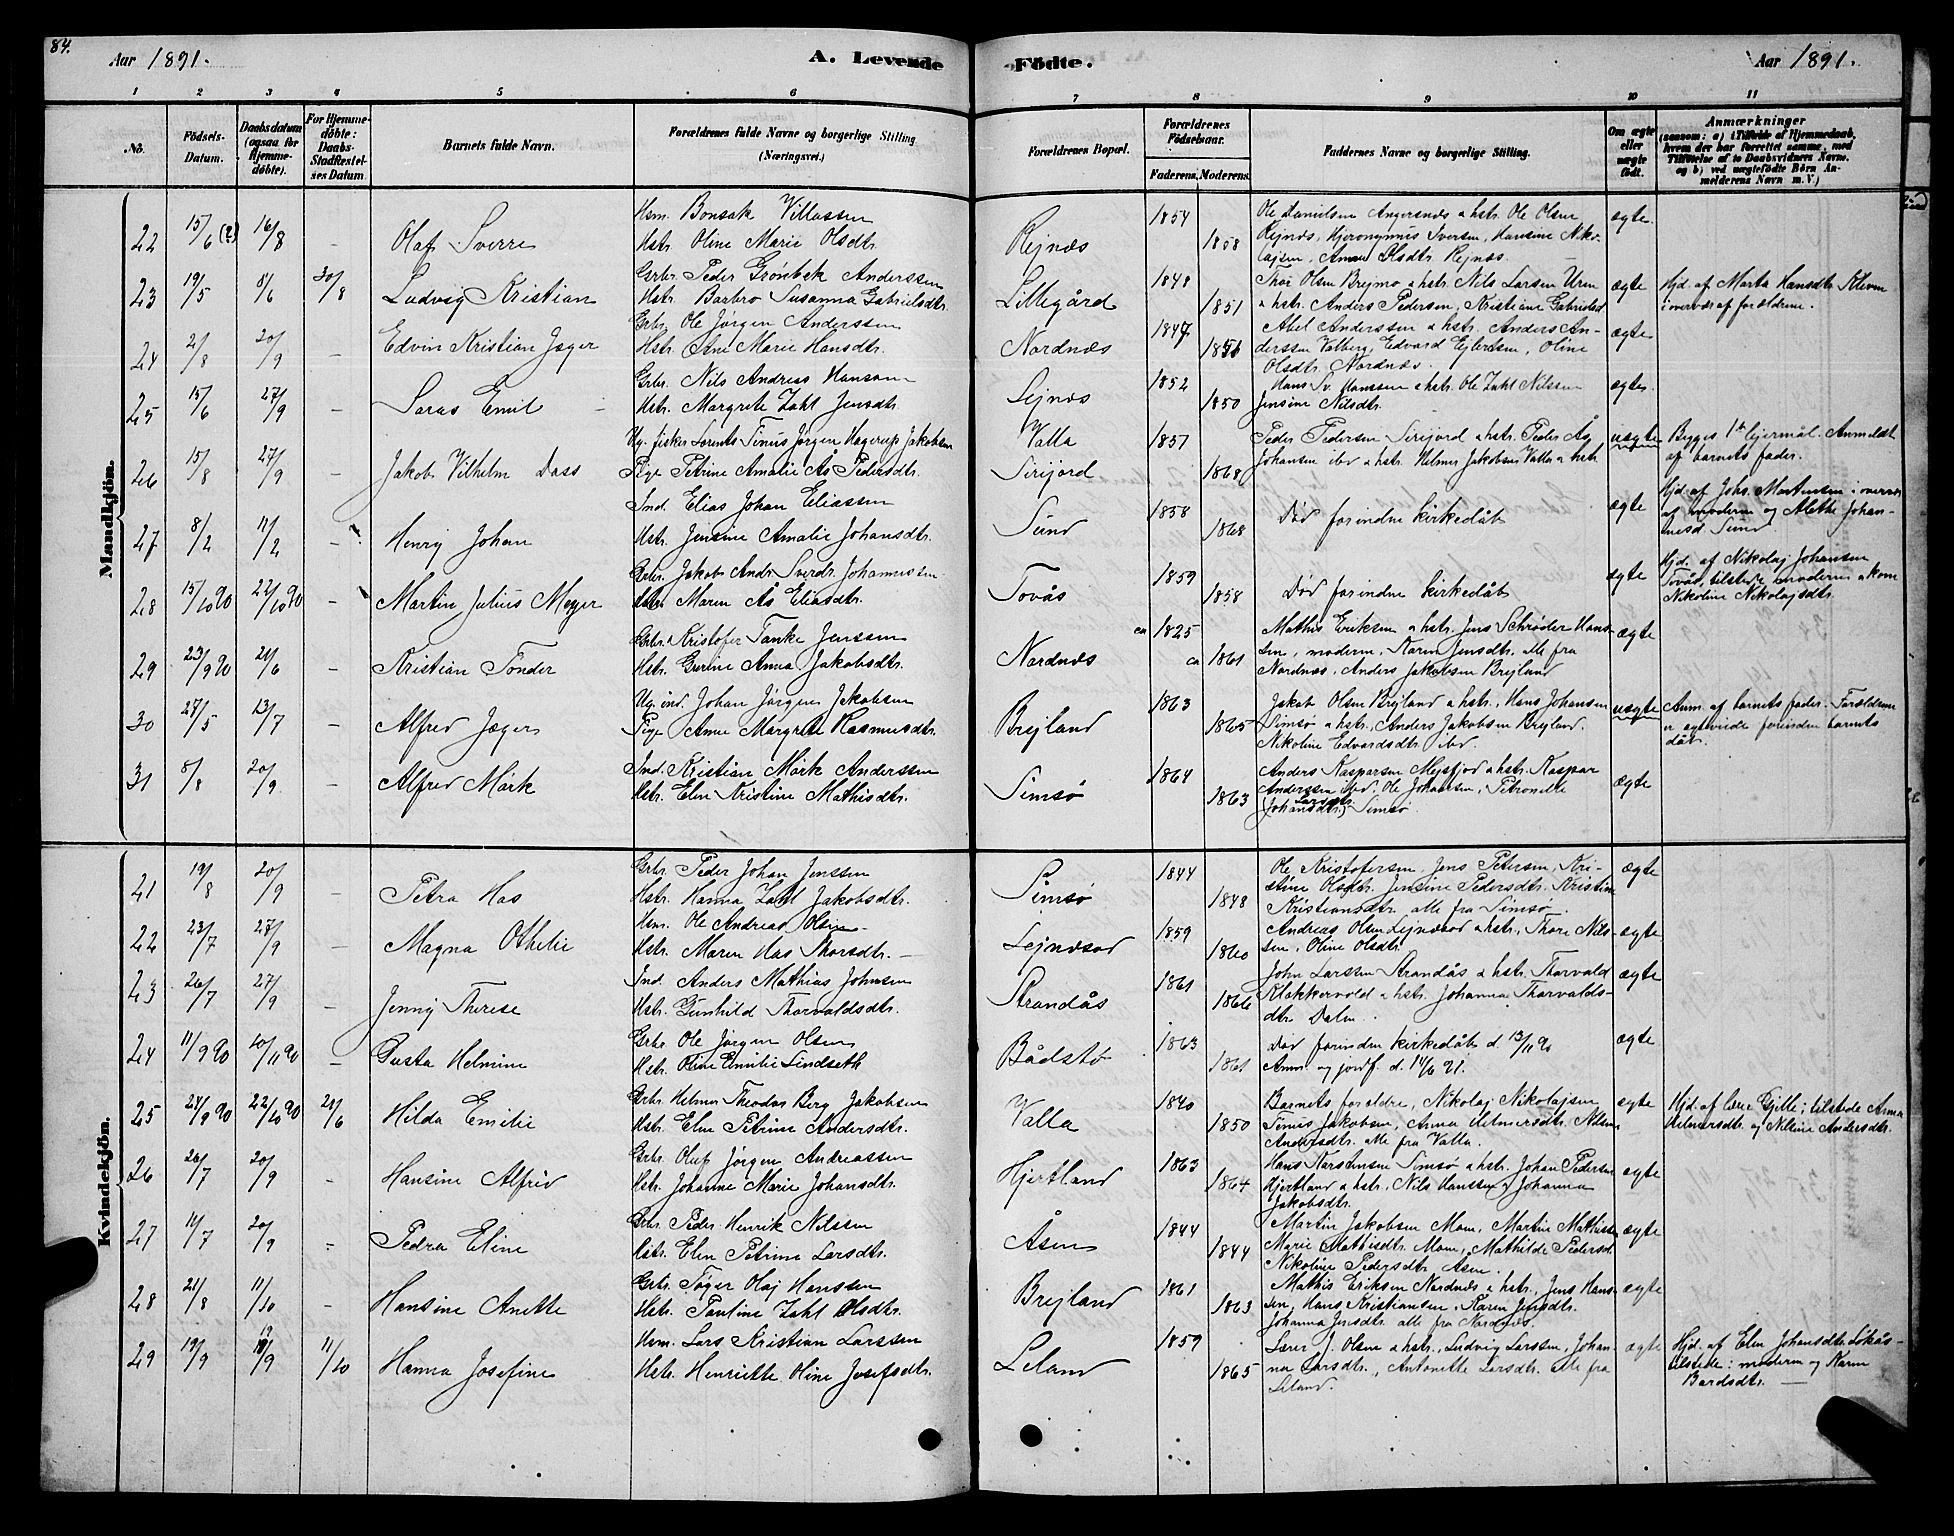 84.
Aar 1891.
A. Levende Fødte.
Aar 1891.
1 2 3 4 5 6 7 8 9 10 11
No.
Fødsels-Datum.
Daabsdatum (ogsaa for Hjemmedøbte).
For Hjemmedøbte: Daabs-Stadfæstelses Datum.
Barnets fulde Navn.
Forældrenes fulde Navne og borgerlige Stilling (Næringsvei.)
Forældrenes Bopæl.
Forældrenes Fødselsaar.
Faderens. Moderens.
Faddernes Navne og borgerlige Stilling.
Om ægte eller uægte født.
Anmærkninger
(saasom: a) i Tilfælde af Hjemmedaab, hvem der har forrettet samme, med Tilføielse af to Daabsvidners Navne. og b) ved uægtefødte Børn Anmelderens Navn m. V.)
Mandkjön.
22 15/6 (?) 16/8 – Olaf Sverre
Hsm. Bonsak Villassen
Hstr. Oline Marie Olsdtr.
Rejnæs 1854 1858
Ole Danielsen Angersnæs & hstr. Ole Olsen
Rejnæs, Hjeronymus Iversen, Hansine Nikolajsen, Anna Olsdtr. Rejnæs.
ægte.
23 19/5 8/6 30/8 Ludvig Kristian
Grbr. Peder Grønbek Anderssen
Hstr. Barbro Susanna Gabrielsdtr.
Lillegård 1848 1851
Thor Olsen Brejmo & hstr. Nils Larsen Uren
& hstr. Anders Pedersen, Kristiane Gabrielsd
ægte
Hjd. af Marta Hansdtr. Kleven
i overvær af forældrene.
24 2/8 20/9 – Edvin Kristian Jæger
Grbr. Ole Jørgen Anderssen
Hstr. Ane Marie Hansdtr.
Nordnæs 1847 1851
Abel Anderssen & hstr. Anders Anderssen Valberg, Edvard Ejlertsen, Oline
Olsdtr. Nordnæs.
ægte
25 15/6 27/9 – Saras Emil
Grbr. Nils Andreas Hansen
Hstr. Margrete Zahl Jensdtr.
Lejnæs 1852 1850
Hans Sv. Hanssen & hstr. Ole Zahl Nilssen
Jensine Nilsdtr.
ægte
26 15/8 27/9 – Jakob Vilhelm Dass
Ug. fisker Lorents Tinus Jørgen Hagerup Jakobsen
Pige Petrine Amalie Ås Pedersdtr.
Valla
Sirijord 1857 1868
Peder Pedersen Sirijord & hstr. Peder Åg
Johansen ibd & hstr. Helmer Jakobsen Valla & hstr
uægte
Begges 1ste lejermål. Anmeldt
af barnets fader.
27 8/2 11/2 Henry Johan
Ind. Elias Johan Eliassen
Hstr. Jensine Amalie Johansdtr.
Sund 1858 1868
Død forinden kirkedåb
ægte
Hjd. af Johs. Mortensen i overvær
af moderen og Alethe Johannesd. Sund
28 15/10 90 22/10 90 – Martin Julius Meyer
Grbr. Jakob Andr. Sverdr. Johannessen
Hstr. Maren Ås Eliasdtr.
Tovås 1859 1858
Død forinden kirkedåb
ægte
Hjd. af Nikolaj Johansen
Tovås, tilstede moderen & kone
Nikoline Nikolajsdtr.
29 23/9 90 21/6 – Kristian Tonder
Grbr. Kristofer Tanke Jenssen
Hstr. Gurine Anna Jakobsdtr.
Nordnæs ca 1825 ca 1861
Mathis Eriksen & hstr. Jens Schrøder Hanssen, moderen, Karen Jensdtr. alle fra
Nordnæs, Anders Jakobsen Brejland
ægte
30 27/5 13/7 – Alfred Jæger
Ug. ind. Johan Jørgen Jakobsen
Pige Anne Margrete Rasmusdtr.
Brejland 1863 1865
Jakob Olsen Brejland & hstr., Hans Johansen
Simsø & hstr. Anders Jakobsen Brejland.
Nikoline Edvardsdtr. ibd.
uægte
Anm. af barnets fader. Forældrene
er ægteviede forinden barnets
dåb.
31 8/8 20/9 – Alfred Mörk
Ind. Kristian Mörk Anderssen
Hstr. Elen Kristine Mathisdtr.
Simsø 1864 1863
Anders Kasparsen Mejsfjord & hstr. Kaspar
Anderssen ibd. Ole Johansen, Petronelle
(Johansdtr.) Larsdtr. Simsø.
ægte
Kvindekjön.
21 19/8 20/9 – Petra Has
Grbr. Peder Johan Jenssen
Hstr. Hanna Zahl Jakobsdtr.
Simsø 1844 1848
Ole Kristofersen, Jens Petersen, Kristine Olsdtr. Jensine Pedersdtr. Kristine
Kristiansdtr. alle fra Simsø.
ægte
22 23/7 27/9 – Magna Othelie
Hsm. Ole Andreas Olsen
Hstr. Maren Has Thorsdtr.
Lejnæsod 1859 1860
Andreas Olsen Lejnæsod & hstr., Thore Nilssen, Oline Olsdtr.
ægte
23 26/7 27/9 – Jenny Therese
Ind. Anders Mathias Johnsen
Hstr. Gunhild Thorvaldsdtr.
Strandås 1861 1866
John Larssen Strandås & hstr. Thorvald
Klokkervold & hstr. Johanna Thorvaldsdtr. Dalen.
ægte
24 11/9 90 10/11 90 – Gusta Helmine
Grbr. Ole Jørgen Olsen
Hstr. Oline Emilie Lindseth
Bådstø 1863 1861
død forinden kirkedåb d. 13/11 90
Anm. og jordf. d. 14/6 91.
ægte
25 24/9 90 22/10 90 21/6 Hilda Emilie
Grbr. Helmer Theodor Berg Jakobsen
Hstr. Elen Petrine Andersdtr.
Valla 1840 1850
Barnets forældre, Nikolaj Nikolajsen
Tinus Jakobsen, Anna Helmersdtr. Nilsine
Andersdtr. alle fra Valla.
ægte
Hjd. af lærer Gjelle; tilstede Anna
Helmersdtr. og Nilsine Andersdtr.
26 26/7 20/9 – Hansine Alfrid
Grbr. Oluf Jørgen Andreassen
Hstr. Johanne Marie Johansdtr.
Hjertland 1863 1864
Hans Karstensen Simsø & hstr. Johan Pedersen
Hjertland & hstr., Nils Hanssen, Johanna
Jakobsdtr.
ægte
27 11/7 20/9 – Pedra Eline
Grbr. Peder Henrik Nilssen
Hstr. Elen Petrina Larsdtr.
Åsen 1844 1844
Martin Jakobsen Moen, Martin Mathissen
Marie Mathisdtr. Moen, Mathilde Pedersd.
Nikoline Pedersdtr. Åsen.
ægte
28 21/8 11/10 – Hansine Anette
Grbr. Tøger Olaj Hanssen
Hstr. Pauline Zahl Olsdtr.
Brejland 1861 1863
Mathis Eriksen Nordnæs & hstr., Jens Hanssen, Hans Kristiansen, Karen Jensdtr.
Johanna Jensdtr. alle fra Nordnæs.
ægte
29 19/9 19/9 11/10 Hanna Josefine
Hsm. Lars Kristian Larssen
Hstr. Henriette Oline Josefsdtr.
Leland 1859 1865
Lærer J. Olsen & hstr., Ludvig Larssen, Johanna Larsdtr., Antonette Larsdtr. alle fra
Leland.
ægte
Hjd. af Elen Johansdtr. Løkås
tilstede: moderen og Karen
Bardsdtr.